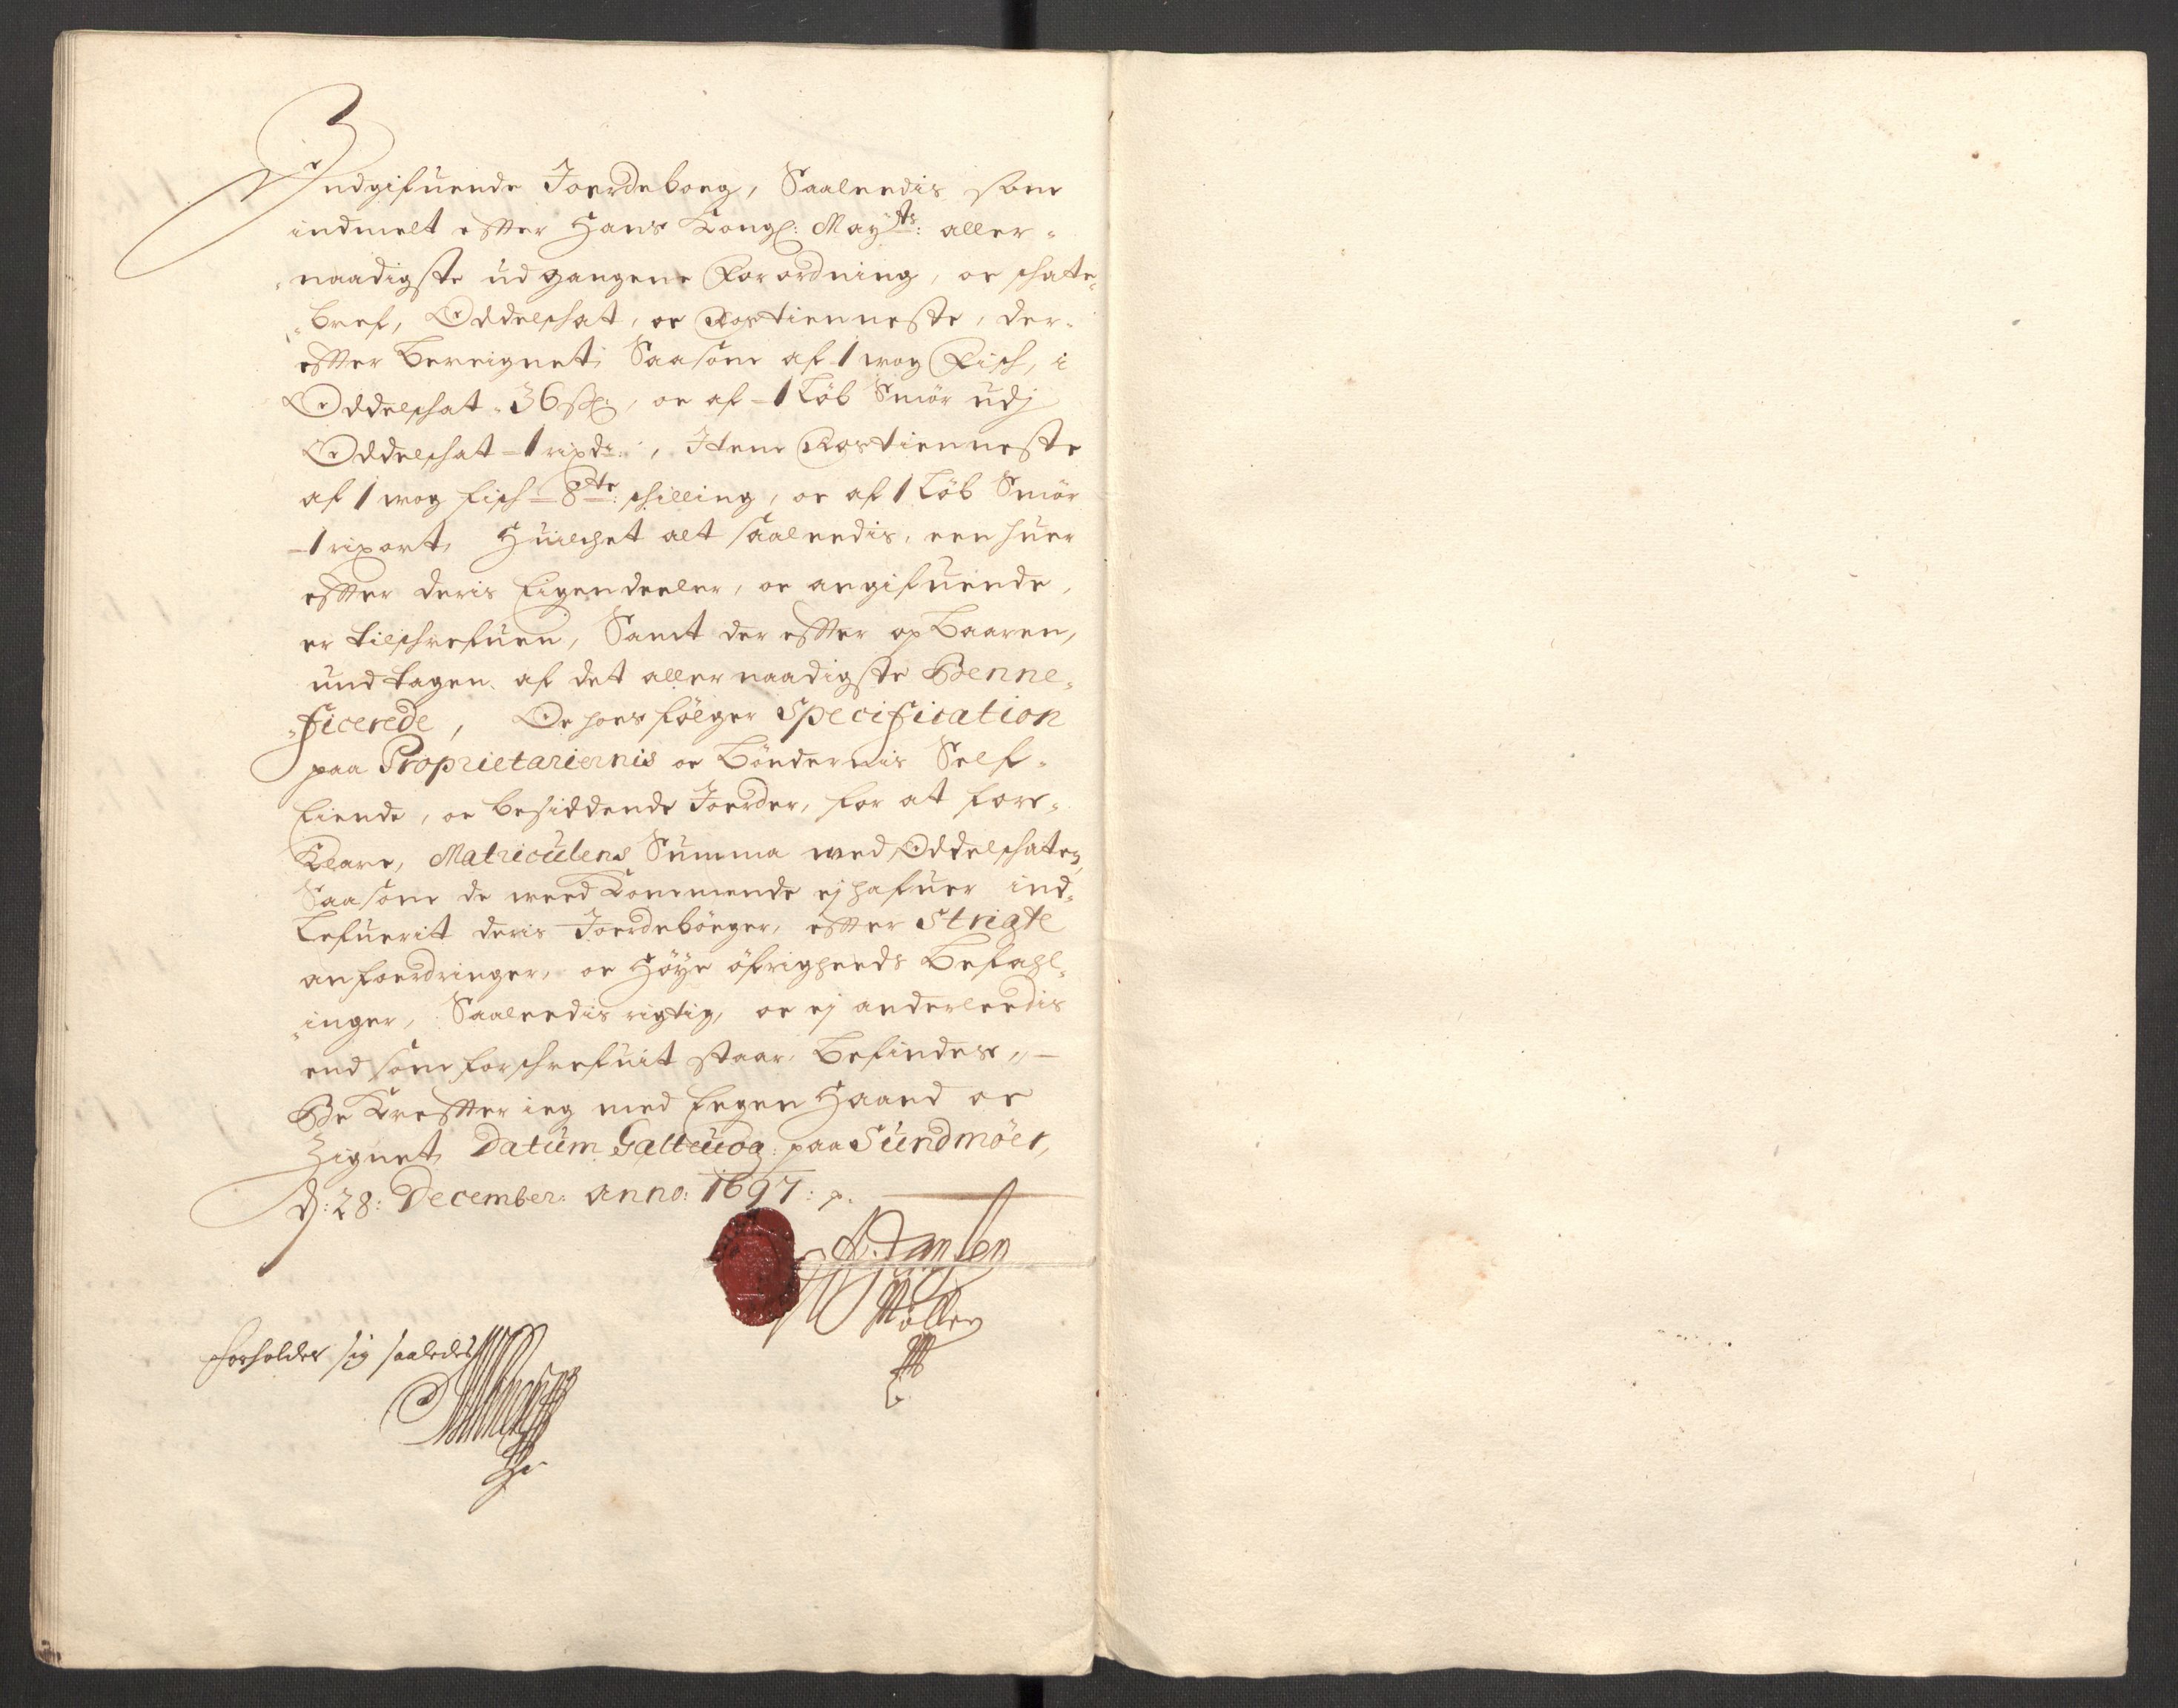 Indgifuende Joerdeboeg, Saaleedis som
indmelt effter Hans Kongl: Mayts: aller-
naadigste udgangene Forordning, oc schatte-
bref, Oddelschat, oc Rostienneste, der-
effter Bereignet; Saasom af 1 wog Fisch, i
Oddelschat 36 sk:, oc af 1 Løb Smør udj
Oddelschat 1 rixdr:, Item Rostienneste
af 1 wog fisch 8te: schilling, oc af 1 Løb Smør
1 rixort, Huilchet alt saaleedis, een huer
effter deris Eigendeeler, oc angifuende,
er tilschrefuen, Samt der effter opbaaren,
undtagen af det allernaadigste Benne-
ficerede, Oc hoes følger Specification
paa Proprietariernis oc Bøndernis Self-
Eiende, oc besiddende Joerder, for at for-
klare, Matriculens Summa med Oddelschatten,
Saasom de weedkommende ej hafuer ind-
Lefuerit deris Joerdebøeger, effter Strigte
anfoerdringer, oc Høye øfrigheeds Befahl-
inger, Saaleedis rigtig, oc ej anderleedis
end som forschrefuit staar, befindes,
Bekreffter ieg med Eegen Haand oc
Zignet, Datum Galteuog paa Sundmøer,
d: 28: December: anno: 1697: p.
Jansen
Møller
forholder sig saaledes